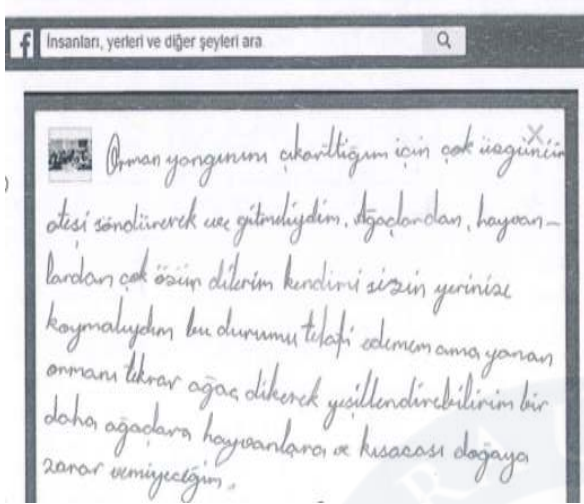 f İnsanları, yerleri ve diğer şeyleri ara
Orman yangınını çıkarttığım için çok üzgünüm
ateşi söndürerek gitmeliydim. Ağaçlardan, hayvan-
lardan çok özür dilerim kendimi sizin yerinize
koymalıydım bu durumu telafi edemem ama yanan
ormanı tekrar ağaç dikerek yeşillendirebilirim bir
daha ağaçlara hayvanlara ve kısacası doğaya
zarar vermiyeceğim.